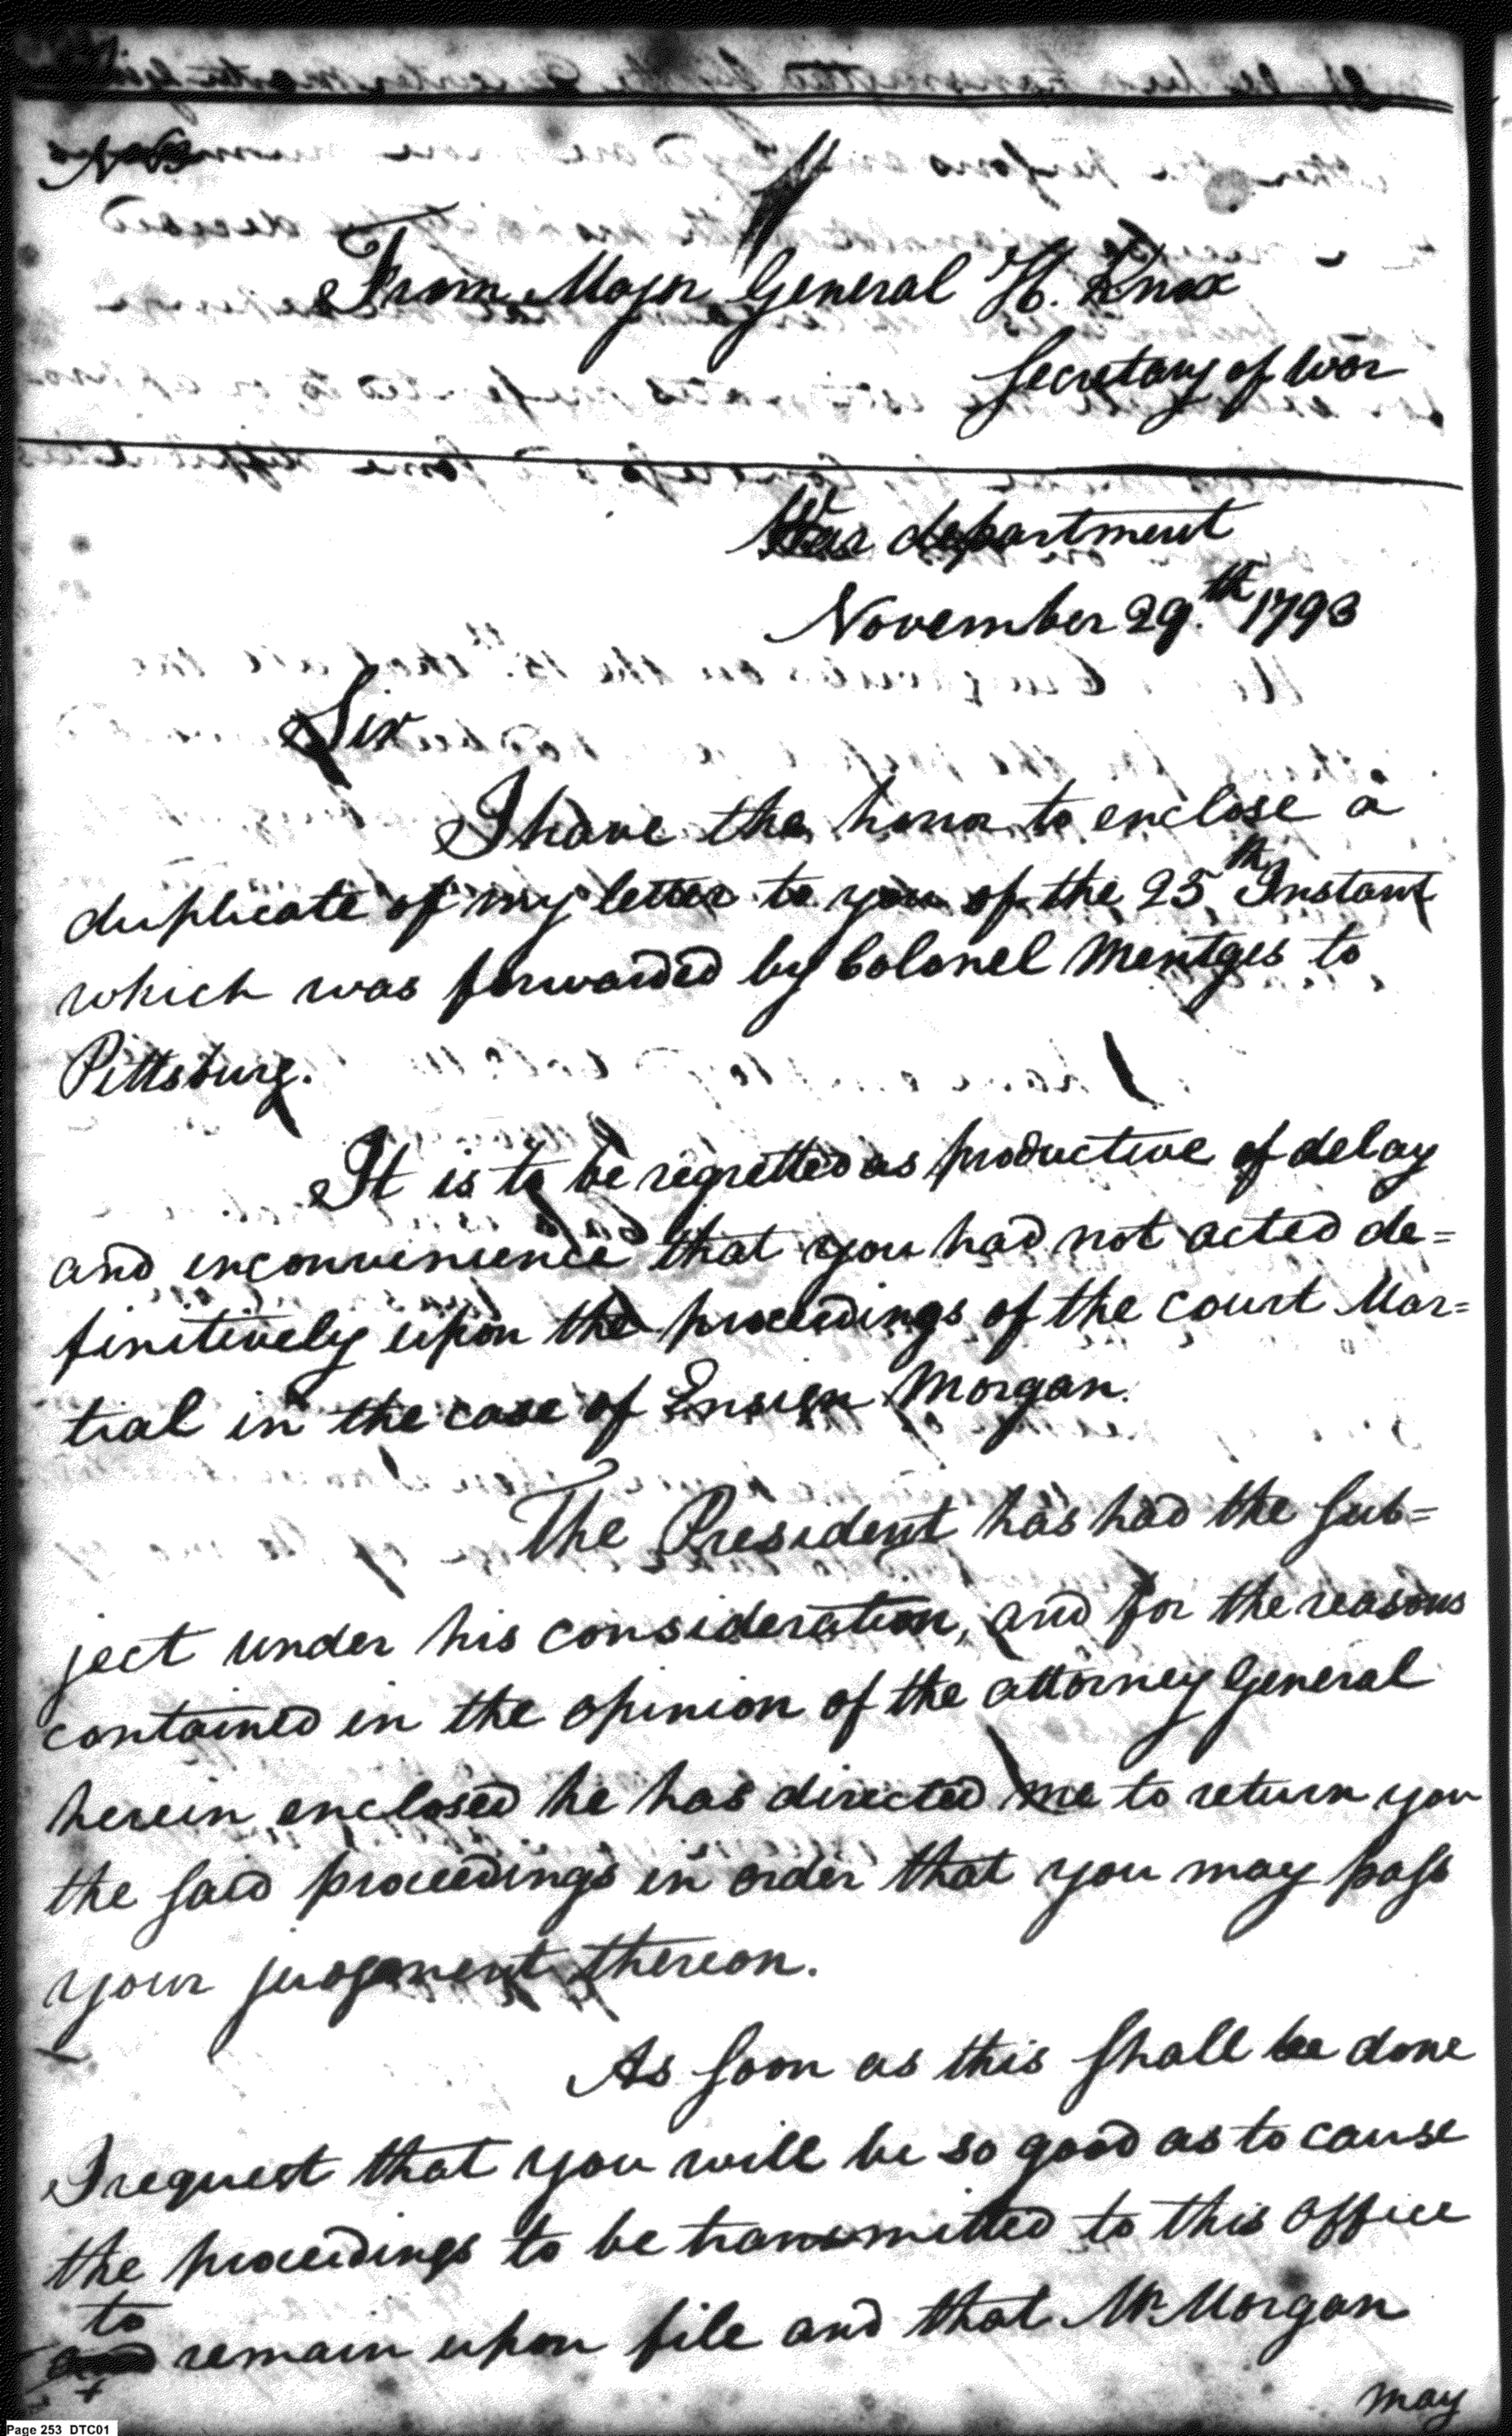 From Major General H. Knox
Secretary of War
War department
November 29.th 1793
Sir
I have the honor to enclose a
duplicate of my letter to you of the 25th Instant
which was forwarded by Colonel Mentges to
Pittsburg.
It is to be regretted as productive of delay
and inconvenience that you had not acted de=
finitively upon the proceedings of the court Mar=
tial in the case of Ensign Morgan.
The President has had the sub=
ject under his consideration, and for the reasons
contained in the opinion of the attorney General
herein enclosed he has directed me to return you
the said proceedings in order that you may pass
your judgement thereon.
As soon as this shall be done
I request that you will be so good as to cause
the proceedings to be transmitted to this office
to
and remain upon file and that Mr. Morgan
may
Page 253 DTC01